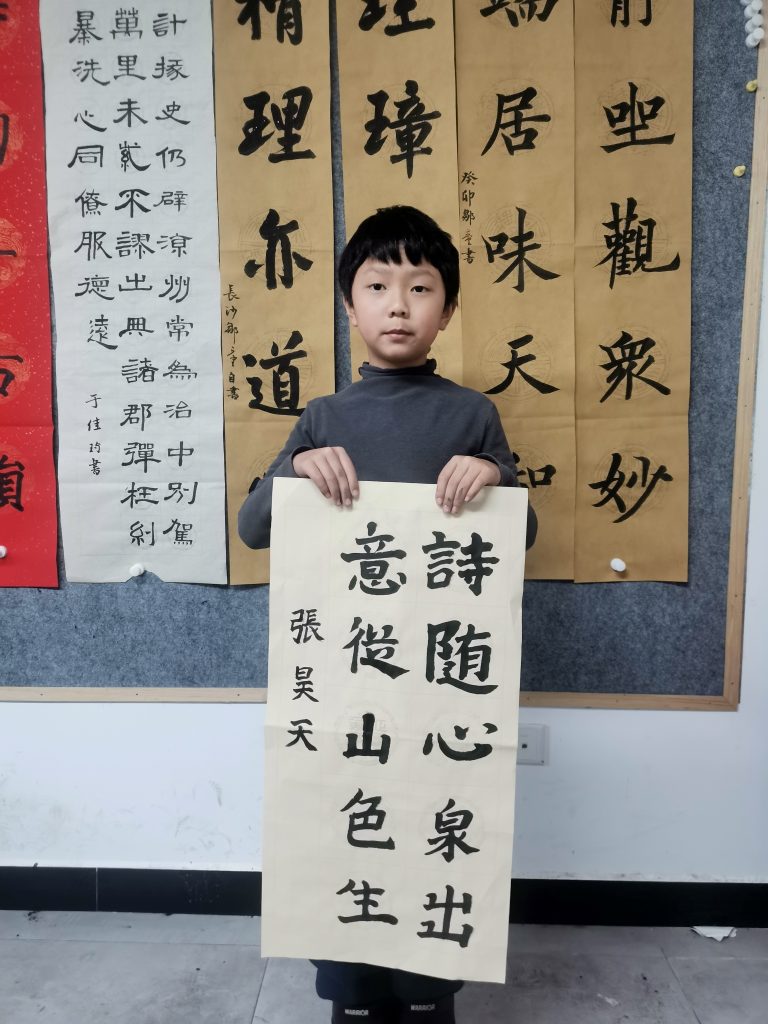 詩随心泉出
意從山色生
張昊天
坐觀衆妙
端居味天和
癸卯鄒童書
璋
精理亦道
長沙鄒童自書
計掾史仍辟涼州常為治中別駕
萬里朱紫不謬出典諸郡彈枉糾
暴洗心同僚服德遠
于佳書
WARRIOR
WARRIOR